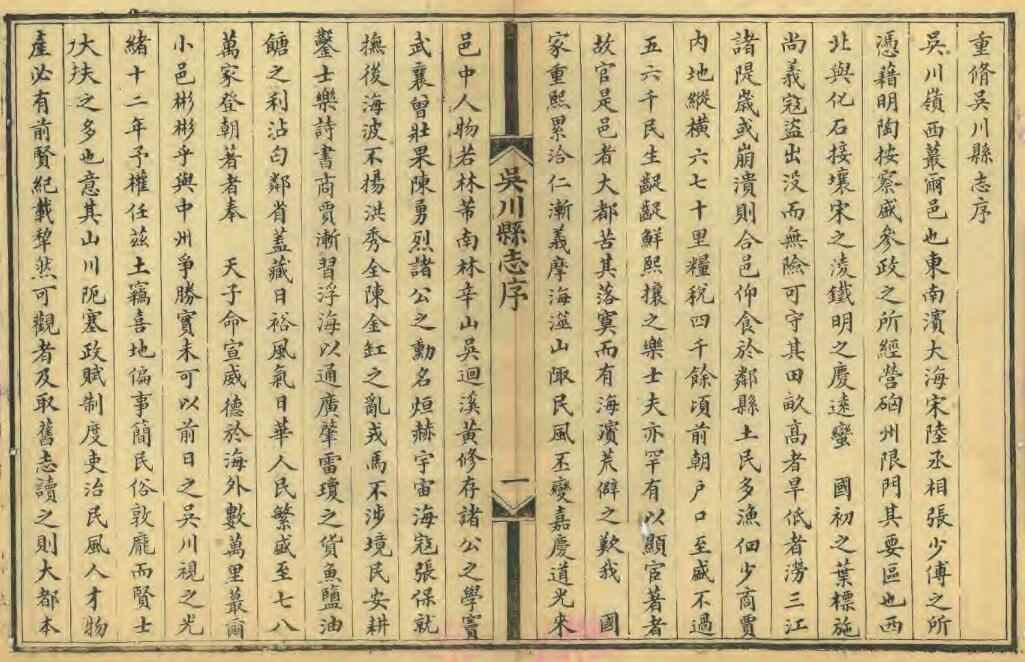 重脩吳川縣志序
吳川嶺西蕞爾邑也東南濱大海宋陸丞相張少傅之所
憑藉明陶按察盛參政之所經營硇州限門其要區也西
北與化石接壤宋之淩鐵明之慶遠蠻 國初之葉標施
尚義寇盜出没而無險可守其田畝高者旱低者澇三江
諸隄歲或崩潰則合邑仰食於鄰縣土民多漁佃少商賈
内地縱橫六七十里糧稅四千餘頃前朝户口至盛不過
五六千民生齷齪鮮熙攘之樂士夫亦罕有以顯宦著者
故官是邑者大都苦其落寞而有海濱荒僻之歎我 國
家重熙累洽仁漸義摩海澨山陬民風丕變嘉慶道光來
吳川縣志序
一
邑中人物若林芾南林辛山吳迴溪黃修存諸公之學竇
武襄曾壯果陳勇烈諸公之勳名烜赫宇宙海寇張保就
撫後海波不揚洪秀全陳金缸之亂戎馬不涉境民安耕
鑿士樂詩書商賈漸習浮海以通廣肇雷瓊之貨魚鹽油
餹之利沾匄鄰省蓋藏日裕風氣日華人民繁盛至七八
萬家登朝著者奉 天子命宣威德於海外數萬里蕞爾
小邑彬彬乎與中州爭勝實未可以前日之吳川視之光
緒十二年予權任茲土竊喜地偏事簡民俗敦龐而賢士
大夫之多也意其山川阨塞政賦制度吏治民風人才物
產必有前賢紀載犂然可觀者及取舊志讀之則大都本